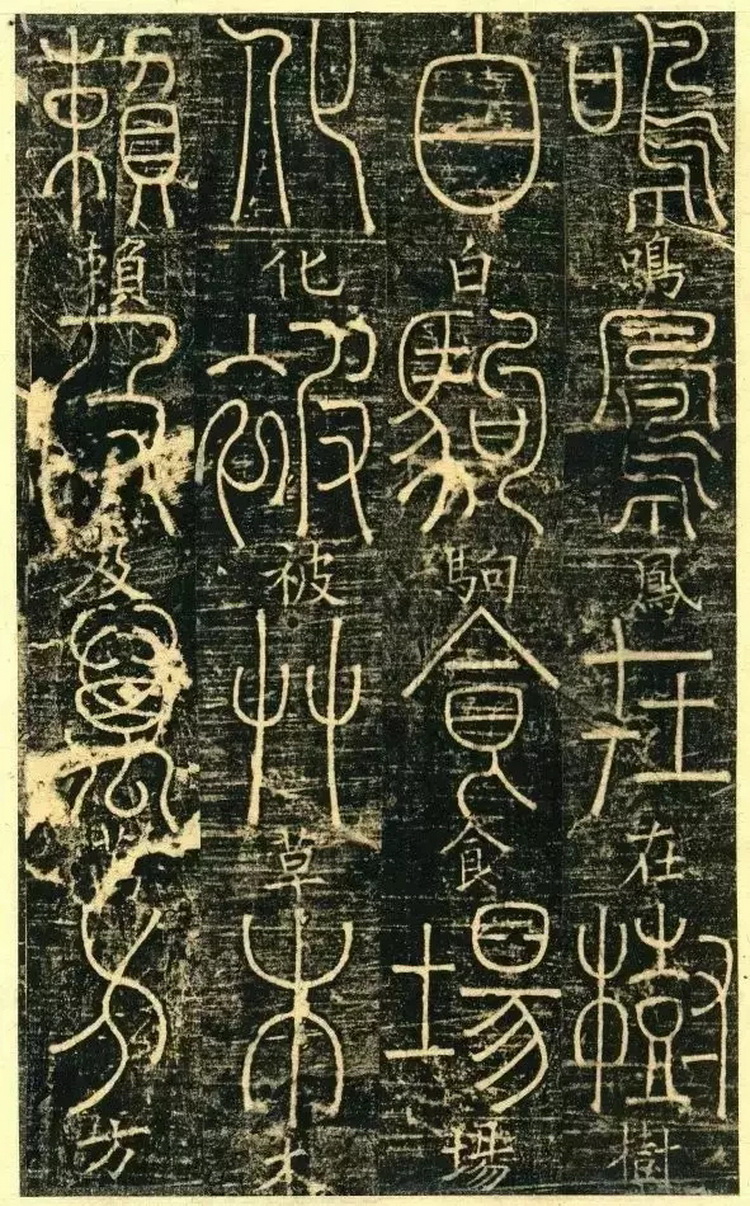 鳴鳴鳳鳳在在樹樹
白白駒駒食食場場
化化被被草草木木
賴賴及及萬方方